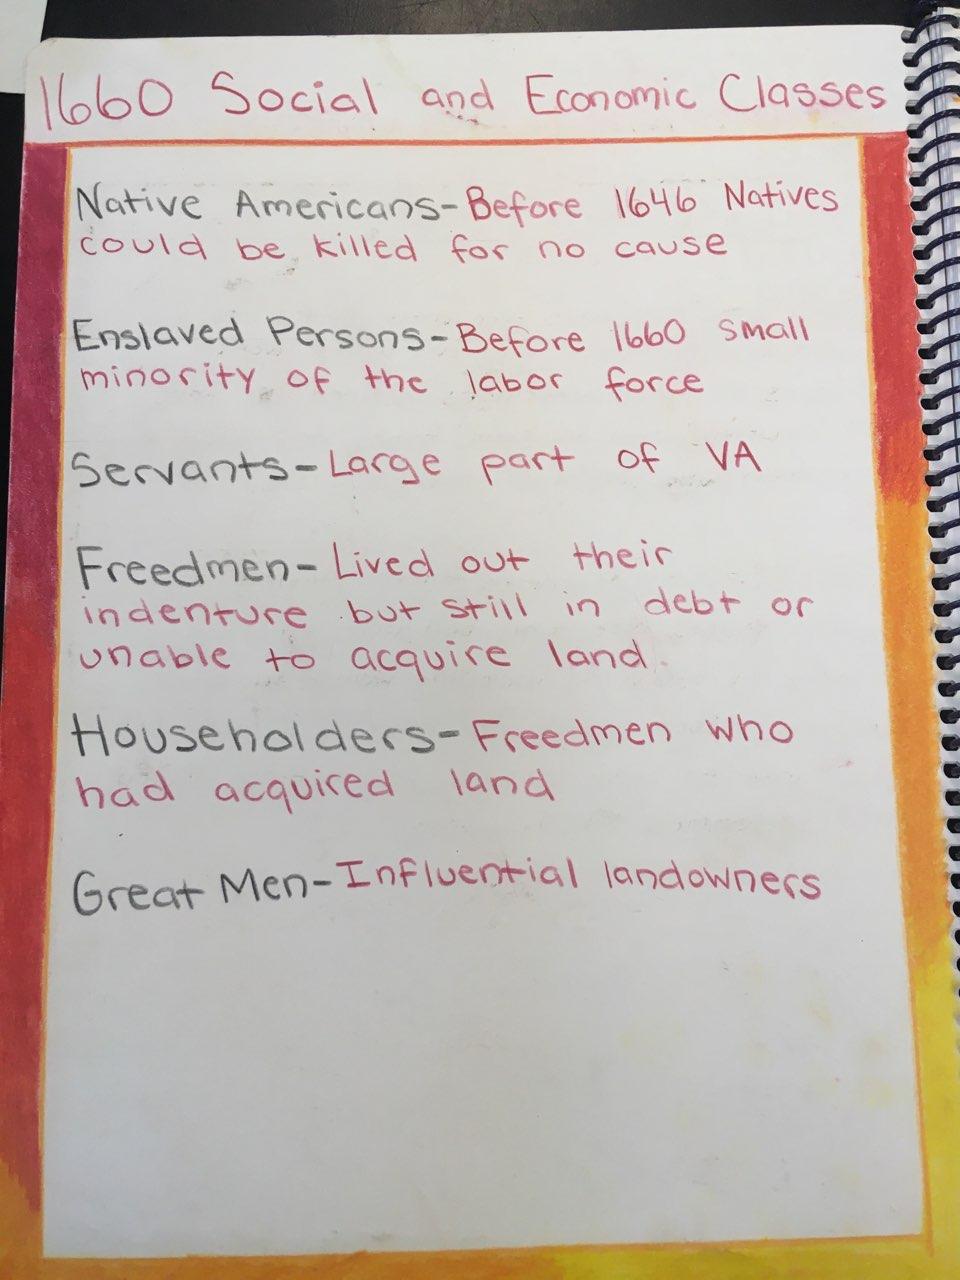 1660 Social and Economic Classes
Native Americans-Before 1646 Natives
could be killed for no cause
Enslaved Persons-Before 1660 small
minority of the labor force
Servants-Large part of VA
Freedmen-Lived out their
indenture but still in debt or
unable to acquire land.
Householders-Freedmen who
had acquired land
Great Men-Influential landowners